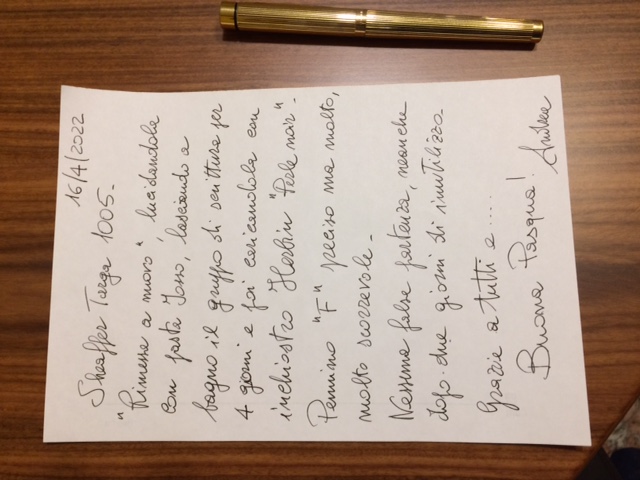 16/4/2022
Sheaffer Targa 1005.
"Rimessa a nuovo" lucidandola
con pasta Iosso, lasciando a
bagno il gruppo di scrittura per
4 giorni e poi caricandola con
inchiostro Herbin "Perle noir".
Pennino "F" preciso ma molto,
molto scorrevole.
Nessuna falsa partenza, neanche
dopo due giorni di inutilizzo.
Grazie a tutti e ....
Buona Pasqua!
Andrea